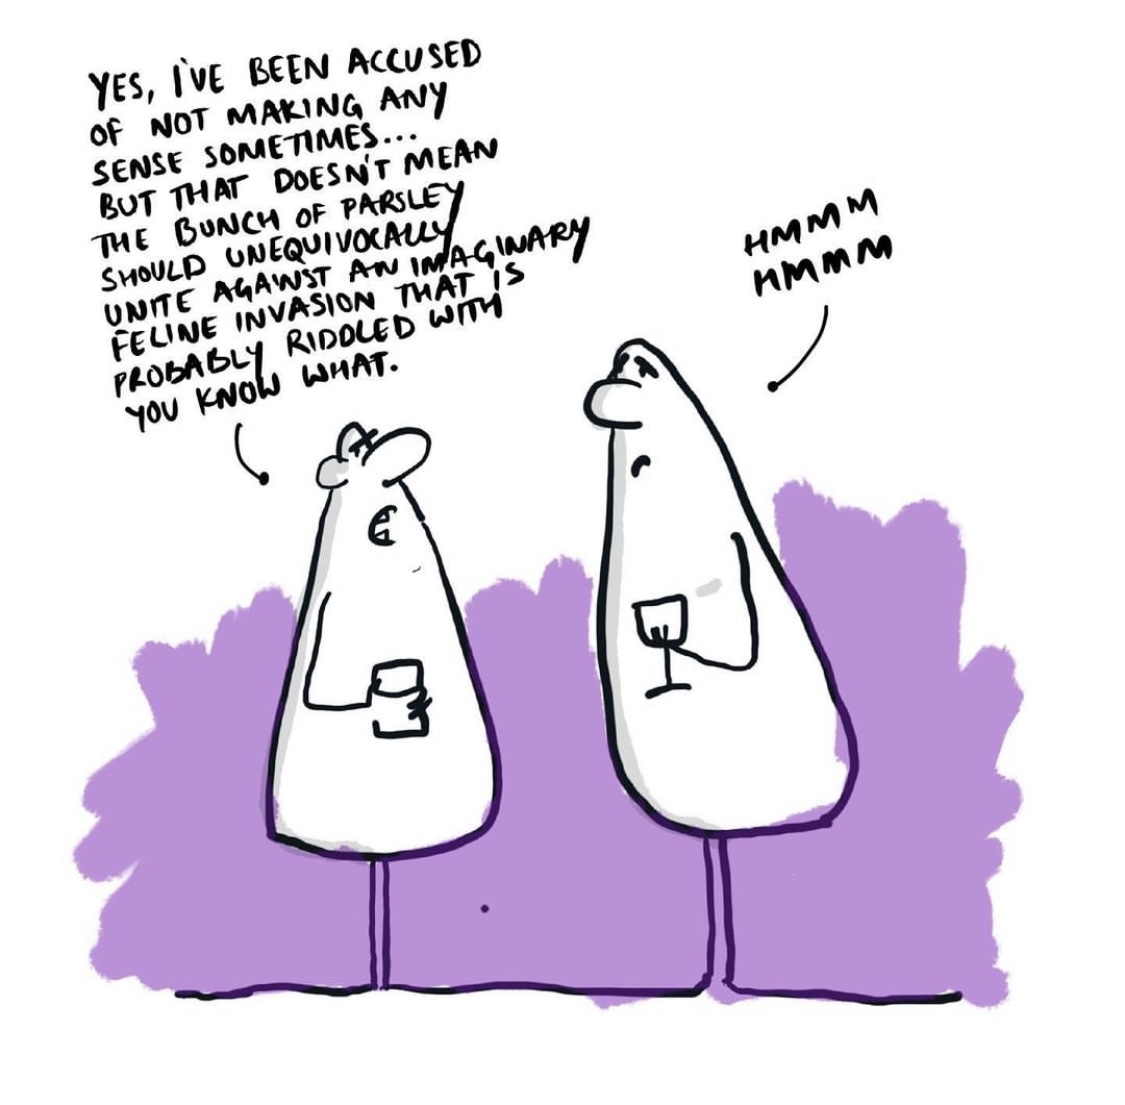 YES, I'VE BEEN ACCUSED
OF NOT MAKING ANY
SENSE SOMETIMES...
BUT THAT DOESN'T MEAN
THE BUNCH OF PARSLEY
SHOULD UNEQUIVOCALLY
UNITE AGAINST AN IMAGINARY
FELINE INVASION THAT IS
PROBABLY RIDDLED WITH
YOU KNOW WHAT.
HMMM
HMMM